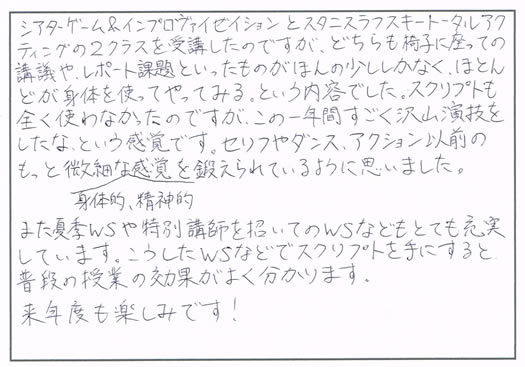 シアターゲーム&インプロヴァイゼイションとスタニスラフスキートータルアク
ティングの2クラスを受講したのですが、どちらも椅子に座っての
講議や、レポート課題といったものがほんの少ししかなく、ほとん
どが身体を使ってやってみる。という内容でした。スクリプトも
全く使わなかったのですが、この一年間すごく沢山演技を
したな、という感覚です。セリフやダンス、アクション以前の
もっと微細な感覚を鍛えられているように思いました。
身体的、精神的
また夏季WSや特別講師を招いてのWSなどもとても充実
しています。こうしたWSなどでスクリプトを手にすると、
普段の授業の効果がよく分かります。
来年度も楽しみです!